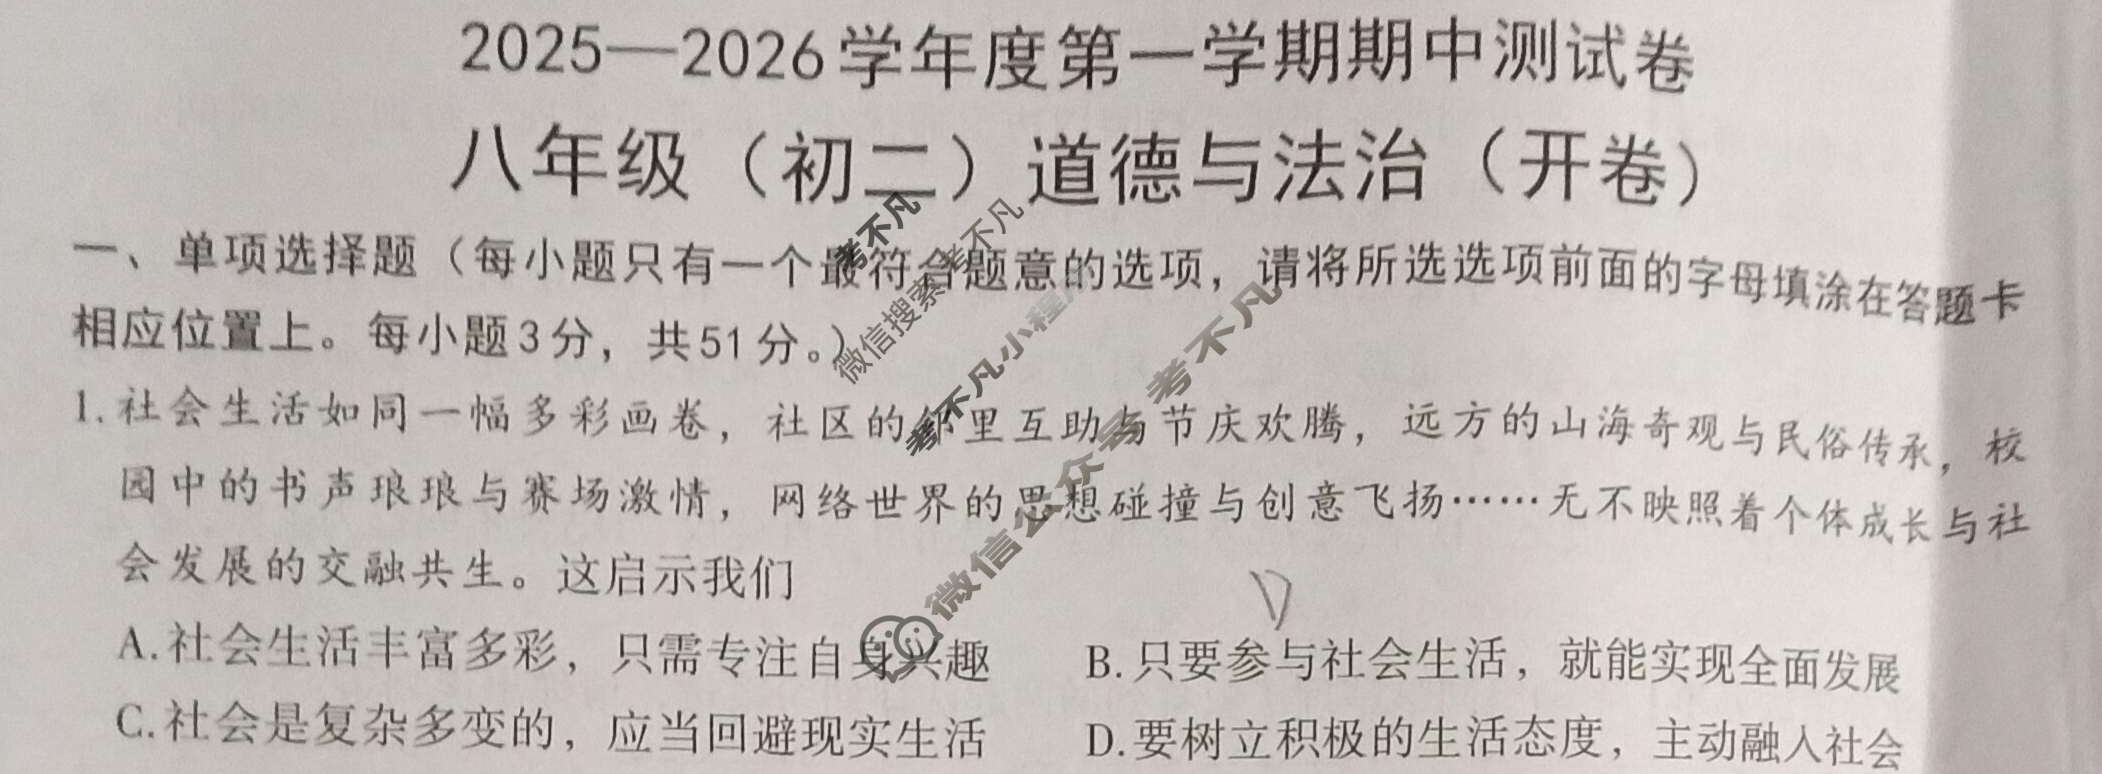 2025—2026学年度第一学期期中测试卷
八年级（初二）道德与法治（开卷）
一、单项选择题（每小题只有一个最符合题意的选项，请将所选选项前面的字母填涂在答题卡
相应位置上。每小题3分，共51分。）
1.社会生活如同一幅多彩画卷，社区的邻里互助与节庆欢腾，远方的山海奇观与民俗传承，校
园中的书声琅琅与赛场激情，网络世界的思想碰撞与创意飞扬……无不映照着个体成长与社
会发展的交融共生。这启示我们
D
A.社会生活丰富多彩，只需专注自身兴趣 B.只要参与社会生活，就能实现全面发展
C.社会是复杂多变的，应当回避现实生活 D.要树立积极的生活态度，主动融入社会
考不凡
考不凡
微信搜索
考不凡小程序
微信公众号 考不凡